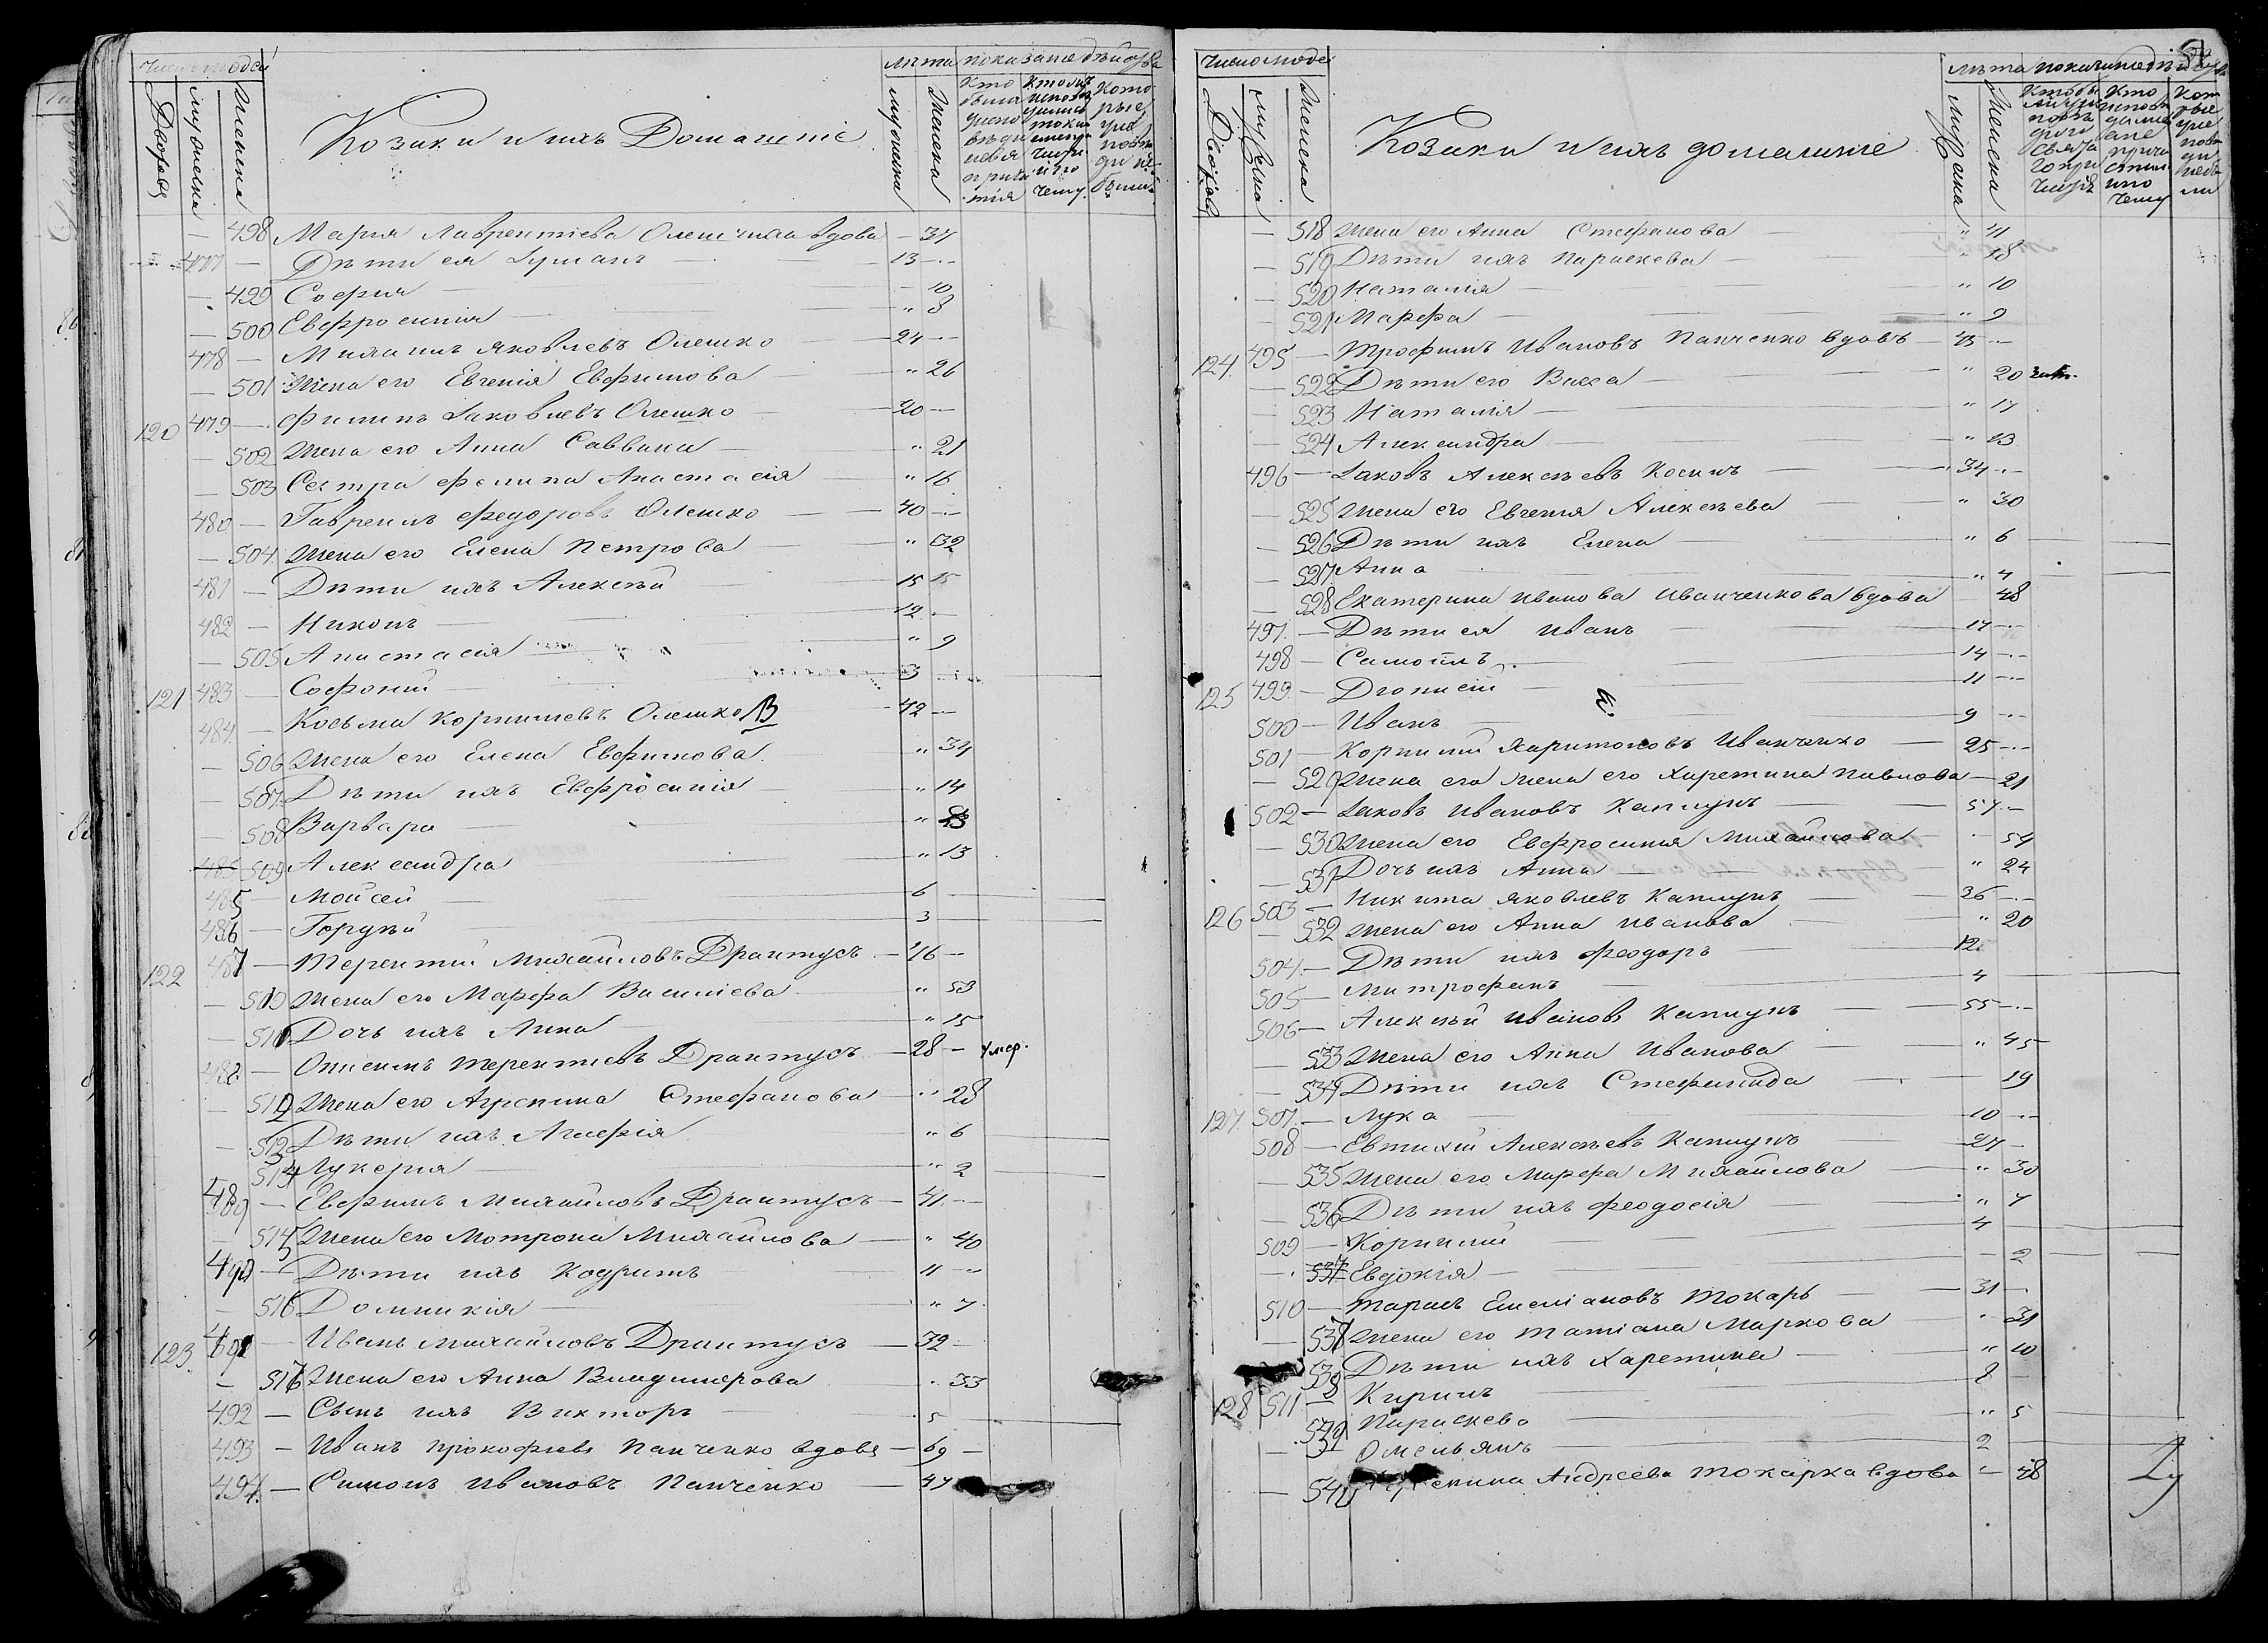 Число людей
Дворовъ
мужеска
женска
Козаки и ихъ Домашніе
лѣта
мужеска
женска
показаніе дѣйства
498 Марія Лаврентіева вдова 37
477 Дѣти ея 13
499 Софія 10
500 Евфросинія 8
478 Яковлевъ Олешко 24
501 Жена его Евгенія Евфимова 26
120 479 Филипъ Іаковлевъ Олешко 20
502 Жена его Анна Саввина 21
503 Сестра Филипа Анастасія 16
480 Гавриилъ Федоровъ Олешко 40
504 Жена его Елена Петрова 32
481 Дѣти ихъ Алексѣй 15 15
482 Никонъ 12
505 Анастасія 9
121 483 Софоній 3
484 Косьма Корниліевъ Олешко В 42
506 Жена его Елена Евфимова 34
507 Дѣти ихъ Евфросинія 14
508 Варвара 13
485 509 Александра 13
485 Мойсей 6
486 Гордѣй 3
122 487 Терентій Михайловъ Драптусъ 46
510 Жена его Марфа Василіева 53
511 Дочь ихъ Анна 15
488 Онисимъ Терентіевъ Драптусъ 28 умер.
512 Жена его Агрепина Стефанова 28
513 Дѣти ихъ Агафія 6
514 Лукерія 2
489 Евфимъ Михайловъ Драптусъ 41
515 Жена его Мотрона Михайлова 40
490 Дѣти ихъ Кодратъ 11
516 Домникія 7
123 491 Иванъ Михайловъ Драптусъ 32
517 Жена его Анна Владимерова 33
492 Сынъ ихъ Викторъ 5
493 Иванъ Прокофіевъ Панченко вдовъ 69
494 Симонъ Ивановъ Панченко 47
Число людей
Дворовъ
мужеска
женска
Козаки и ихъ домашніе
лѣта
мужеска
женска
518 Жена его Анна Стефанова 41
519 Дѣти ихъ Параскева 18
520 Наталія 10
521 Марфа 9
124 495 Трофимъ Ивановъ Панченко вдовъ 45
522 Дѣти его Васса 20
523 Наталія 17
524 Александра 13
496 Іаковъ Алексѣевъ Косинъ 34
525 Жена его Евгенія Алексѣева 30
526 Дѣти ихъ Елена 6
527 Анна 4
528 Екатерина Иванова Иванченкова вдова 48
497 Дѣти ея Иванъ 17
498 Самоилъ 14
125 499 Діонисій 11
500 Иванъ 9
501 Корнилій Харитоновъ Иванченко 25
529 Жена его Жена его Харетина Павлова 21
502 Іаковъ Ивановъ Каплунъ 57
530 Жена его Евфросинія Михайлова 54
531 Дочь ихъ Анна 24
126 503 Никита Яковлевъ Каплунъ 36
532 Жена его Анна Иванова 20
504 Дѣти ихъ Феодоръ 12
505 Митрофанъ 4
506 Алексѣй Ивановъ Каплунъ 55
533 Жена его Анна Иванова 45
534 Дѣти ихъ Стефанида 19
127 507 Лука 10
508 Евтихій Алексѣевъ Каплунъ 27
535 Жена его Марфа Михайлова 30
536 Дѣти ихъ Феодосія 7
509 Корнилій 4
537 Евдокія 2
510 Тарасъ Емеліановъ Токарь 31
537 Жена его Татіана Маркова 31
538 Дѣти ихъ Харетина 10
128 511 Кирилъ 8
539 Параскева 5
Омельянъ 2
540 Андреева Токарка вдова 48